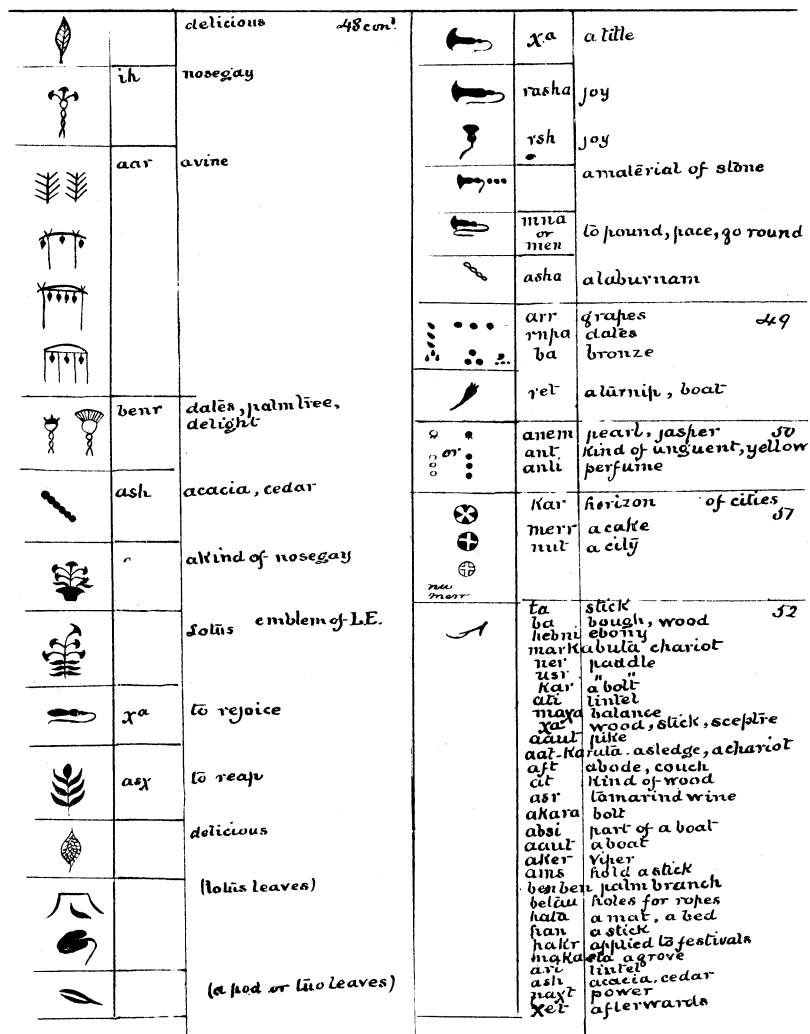 delicious 48 cont
ih nosegay
aar a vine
benr dates, palm tree,
delight
ash acacia, cedar
a kind of nosegay
Lotus emblem of L.E.
χa to rejoice
asχ to reap
delicious
(lotus leaves)
(a pod or two leaves)
χa a title
rasha joy
rsh joy
a material of stone
mna
or
men to pound, pace, go round
asha a laburnam
arr grapes 49
rnpa dates
ba bronze
ret a turnip, boat
anem pearl, jasper 50
or ant kind of unguent, yellow
anti perfume
Kar horizon of cities
51
merr a cake
nut a city
nu
merr
ta stick 52
ba bough, wood
hebni ebony
marKabuta chariot
ner paddle
usr " "
Kar a bolt
ati lintel
maχa balance
χa wood, stick, sceptre
aaut pike
aat-Karuta. a sledge, a chariot
aft abode, couch
at kind of wood
asr tamarind wine
akara bolt
absi part of a boat
aaut a boat
aker viper
ams hold a stick
benben palm branch
betau holes for ropes
hata a mat, a bed
han a stick
hakr applied to festivals
maKaata a grove
ari lintel
ash acacia. cedar
naχt power
χet afterwards